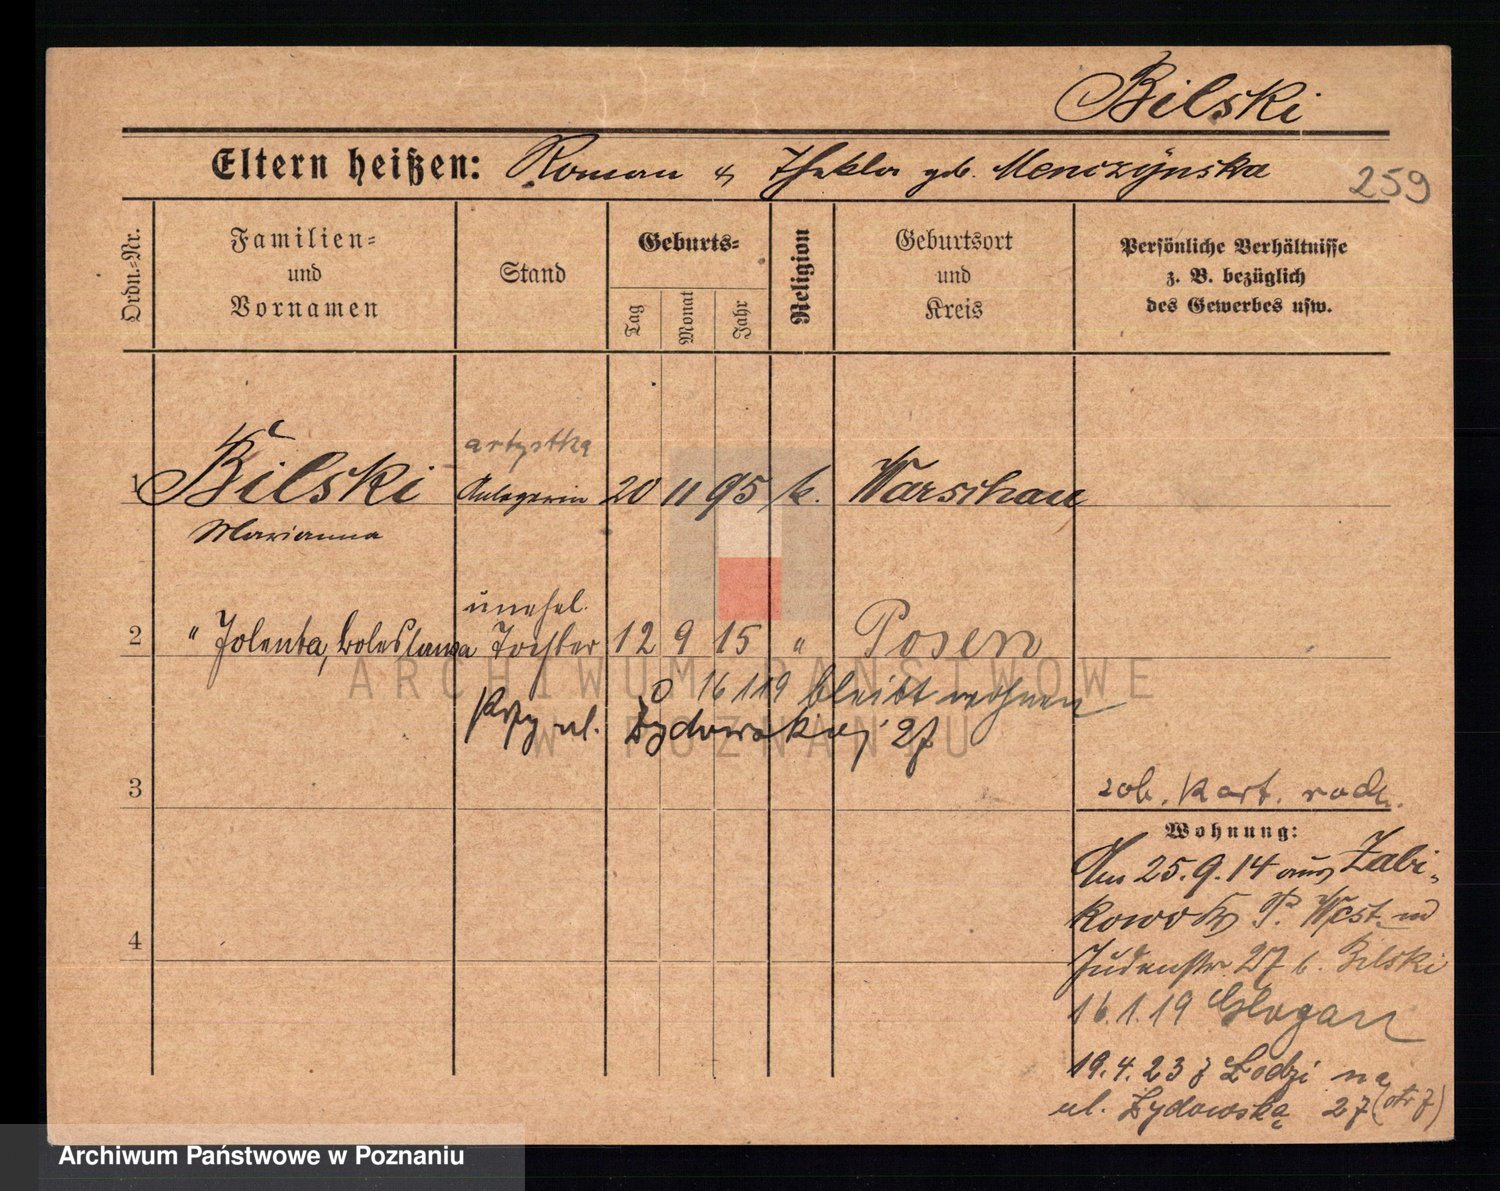 Bilski
Eltern heißen: Roman & Thekla geb. Menczynska
259
Ordn.-Nr.
Familien-
und
Vornamen
Stand
Geburts-
Tag
Monat
Jahr
Religion
Geburtsort
und
Kreis
Persönliche Verhältnisse
z. B. bezüglich
des Gewerbes usw.
artystka
1 Bilski Anlegerin 20 11 95 k. Warschau
Marianna
unehel.
2 " Jolenta, Boleslawa Tochter 12 9 15 " Posen
16 1 19 bleibt wohnen
przy ul. Żydowskiej 27
3
zob. kart. rodz.
Wohnung:
Am 25.9.14 aus Zabi-
kowo Kr P. West. nd
4
Judenstr. 27 b. Bilski
16.1.19 Glogau
19.4.23 z Łodzi na
ul. Żydowską 27 (otr 7)
ARCHIWUM PAŃSTWOWE
W POZNANIU
Archiwum Państwowe w Poznaniu